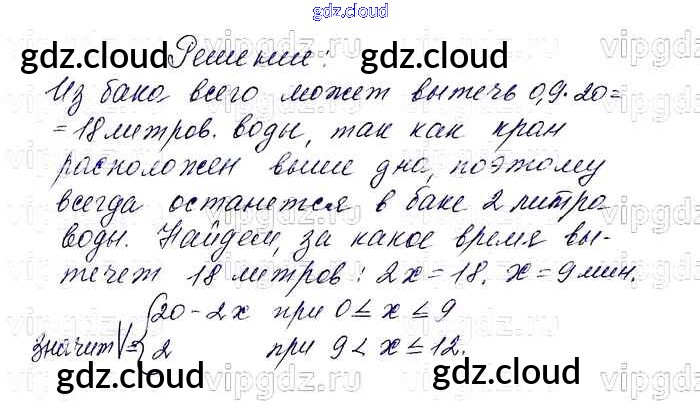 gdz.cloud
Решение:
gdz.cloud gdz.cloud
Из бака всего может вытечь 0,9·20=
=18 литров. воды, так как кран
расположен выше дна, поэтому
всегда останется в баке 2 литра
воды. Найдем, за какое время вы-
течет 18 литров: 2x=18. x=9 мин.
20-2x при 0≤x≤9
значит V=
2 при 9<x≤12.
gdz.cloud gdz.cloud
vipgdz.ru
vipgdz.ru
vipgdz.ru